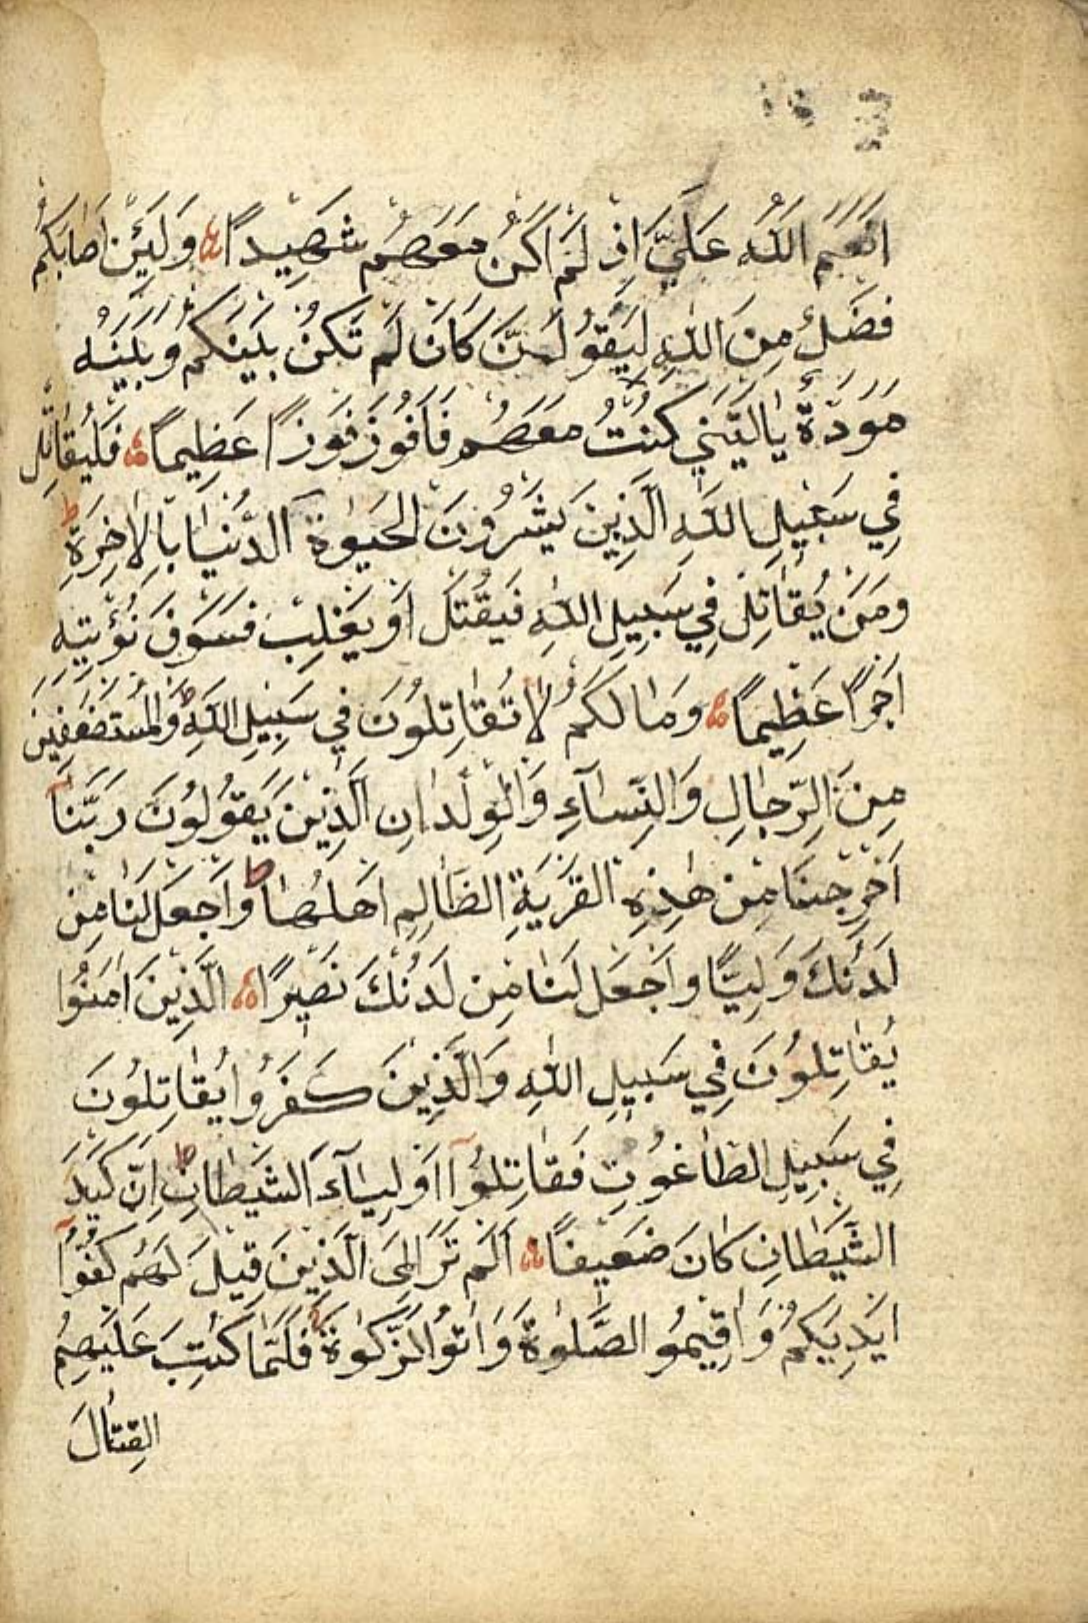 اَنْعَمَ اللّٰهُ عَلَيَّ اِذْ لَمْ اَكُنْ مَعَهُمْ شَهِيدًا وَلَئِنْ اَصَابَكُمْ
فَضْلٌ مِنَ اللّٰهِ لَيَقُولَنَّ كَانَ لَمْ تَكُنْ بَيْنَكُمْ وَبَيْنَهُ
مَوَدَّةٌ يَالَيْتَنِي كُنْتُ مَعَهُمْ فَاَفُوزَ فَوْزًا عَظِيمًا فَلْيُقَاتِلْ
فِي سَبِيلِ اللّٰهِ الَّذِينَ يَشْرُونَ الْحَيٰوةَ الدُّنْيَا بِالْاٰخِرَةِ ط
وَمَنْ يُقَاتِلْ فِي سَبِيلِ اللّٰهِ فَيُقْتَلْ اَوْ يَغْلِبْ فَسَوْفَ نُؤْتِيهِ
اَجْرًا عَظِيمًا وَمَا لَكُمْ لَا تُقَاتِلُونَ فِي سَبِيلِ اللّٰهِ وَالْمُسْتَضْعَفِينَ
مِنَ الرِّجَالِ وَالنِّسَآءِ وَالْوِلْدَانِ الَّذِينَ يَقُولُونَ رَبَّنَآ
اَخْرِجْنَا مِنْ هٰذِهِ الْقَرْيَةِ الظَّالِمِ اَهْلُهَا ط وَاجْعَلْ لَنَا مِنْ
لَدُنْكَ وَلِيًّا وَاجْعَلْ لَنَا مِنْ لَدُنْكَ نَصِيرًا الَّذِينَ اٰمَنُوا
يُقَاتِلُونَ فِي سَبِيلِ اللّٰهِ وَالَّذِينَ كَفَرُوا يُقَاتِلُونَ
فِي سَبِيلِ الطَّاغُوتِ فَقَاتِلُوآ اَوْلِيَآءَ الشَّيْطَانِ ط اِنَّ كَيْدَ
الشَّيْطَانِ كَانَ ضَعِيفًا اَلَمْ تَرَ اِلَى الَّذِينَ قِيلَ لَهُمْ كُفُّوآ
اَيْدِيَكُمْ وَاَقِيمُوا الصَّلٰوةَ وَاٰتُوا الزَّكٰوةَ فَلَمَّا كُتِبَ عَلَيْهِمُ
الْقِتَالُ